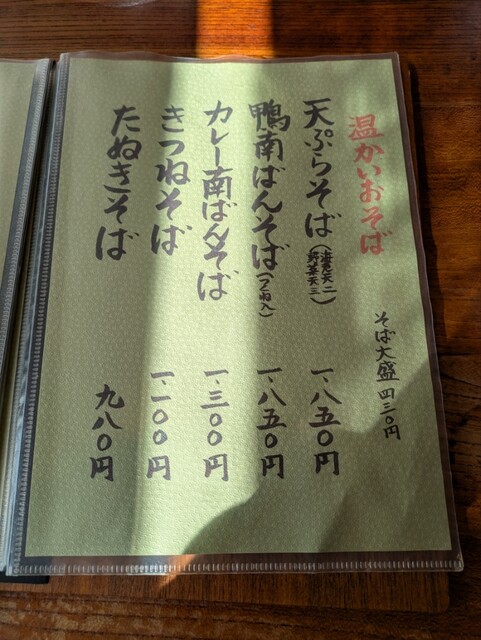 温かいおそば
そば大盛 四三〇円
天ぷらそば(海老天二 野菜天三) 一、八五〇円
鴨南ばんそば(つくね入) 一、八五〇円
カレー南ばんそば 一、三〇〇円
きつねそば 一、一〇〇円
たぬきそば 九八〇円